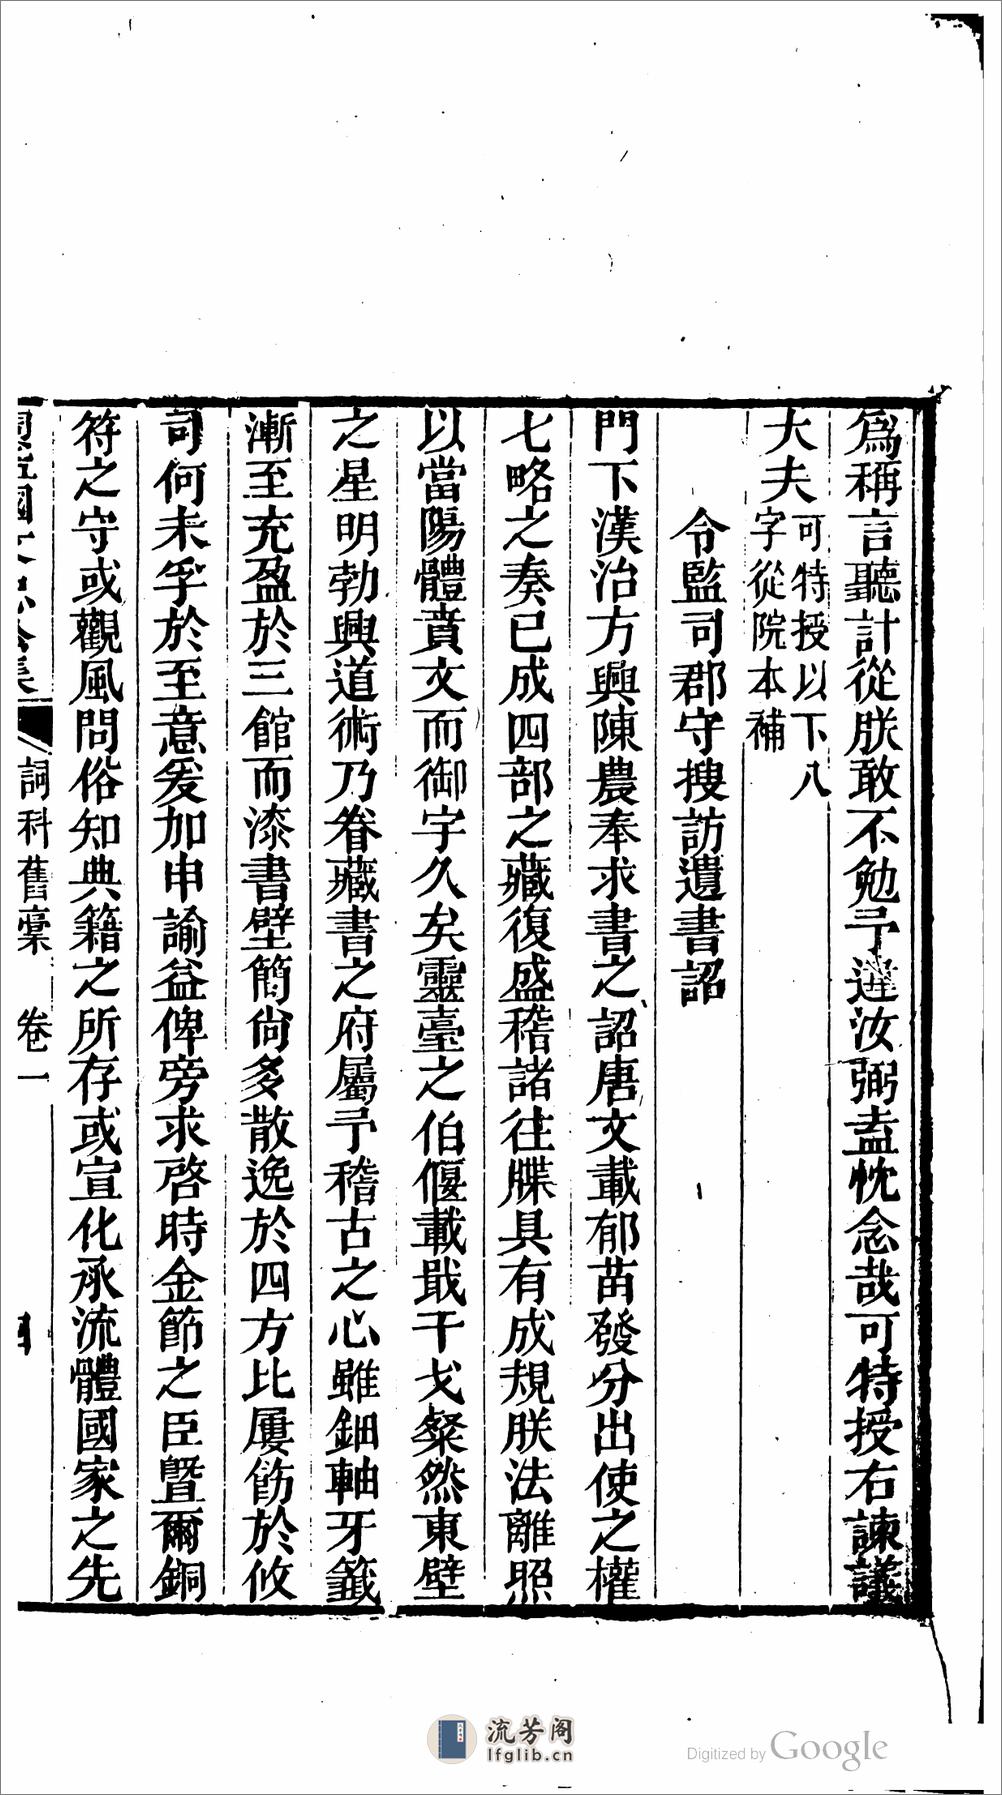 為稱言聽計從朕敢不勉予違汝弼盍忱念哉可特授右諫議
大夫可特授以下八
字從院本補
令監司郡守搜訪遺書詔
門下漢治方興陳農奉求書之詔唐文載郁苗發分出使之權
七略之奏已成四部之藏復盛稽諸往牒具有成規朕法離照
以當陽體賁文而御宇久矣靈臺之伯偃載戢干戈粲然東壁
之星明勃興道術乃眷藏書之府屬予稽古之心雖鈿軸牙籤
漸至充盈於三館而漆書壁簡尚多散逸於四方比屢飭於攸
司何未孚於至意爰加申諭益俾旁求啓時金節之臣暨爾銅
符之守或觀風問俗知典籍之所存或宣化承流體國家之先
詞科舊稾 卷一
流芳阁
lfglib.cn
Digitized by Google